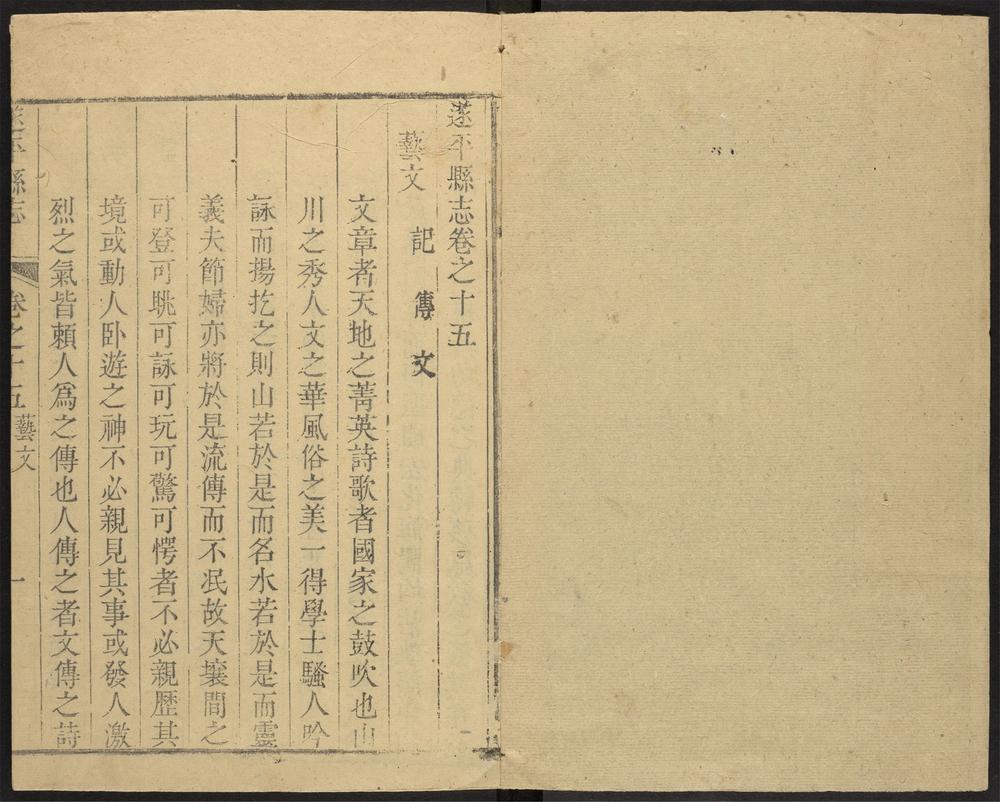 遂平縣志卷之十五
藝文
記 傳 文
文章者天地之菁英詩歌者國家之鼓吹也山
川之秀人文之華風俗之美一得學士騷人吟
詠而揚扢之則山若於是而名水若於是而靈
義夫節婦亦將於是流傳而不泯故天壤間之
可登可眺可詠可玩可驚可愕者不必親歷其
境或動人卧遊之神不必親見其事或發人激
烈之氣皆賴人爲之傳也人傳之者文傳之詩
遂平縣志 卷之十五 藝文 一